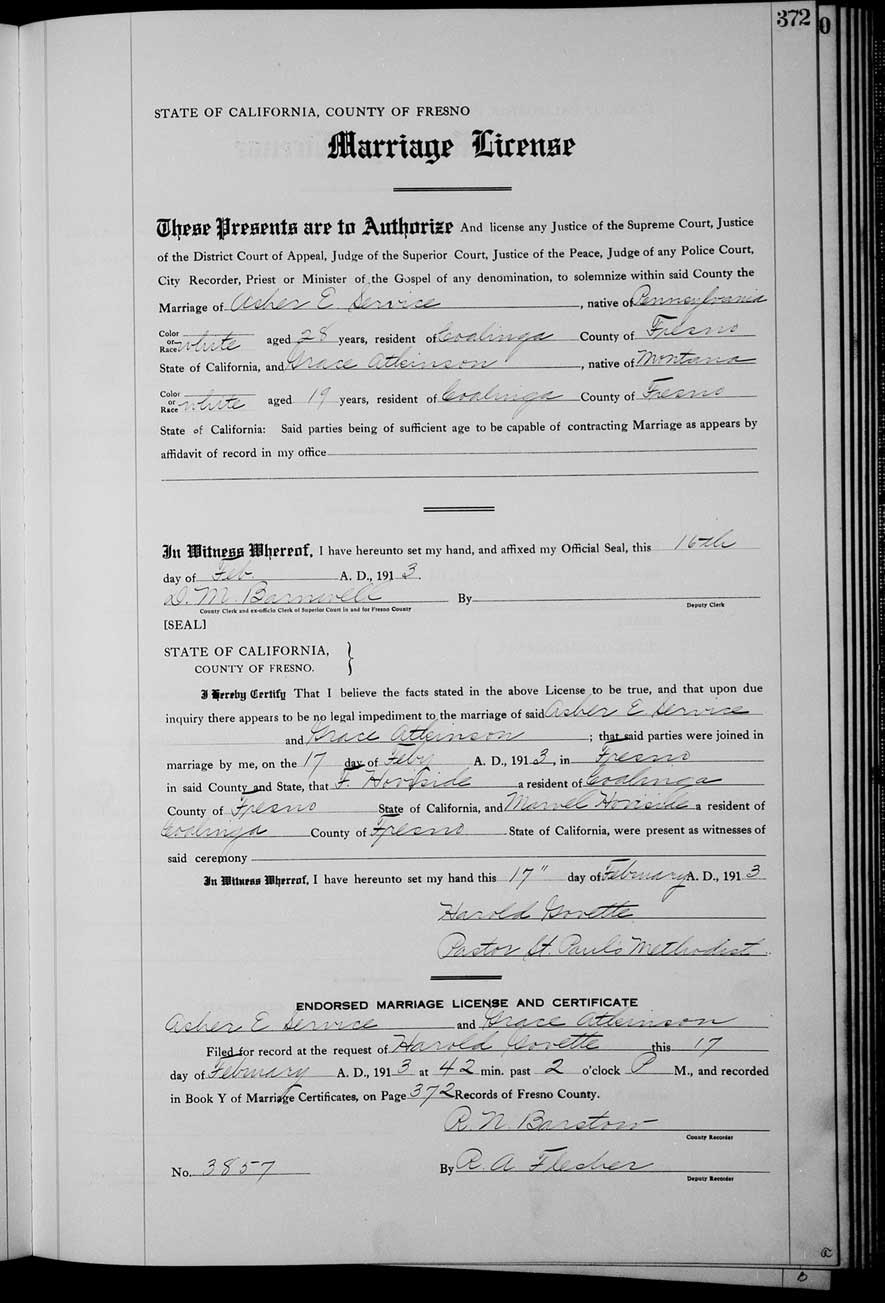 372
0
STATE OF CALIFORNIA, COUNTY OF FRESNO
Marriage License
These Presents are to Authorize And license any Justice of the Supreme Court, Justice
of the District Court of Appeal, Judge of the Superior Court, Justice of the Peace, Judge of any Police Court,
City Recorder, Priest or Minister of the Gospel of any denomination, to solemnize within said County the
Marriage of Asher E Service, native of Pennsylvania
Color or Race white aged 28 years, resident of Coalinga County of Fresno
State of California, and Grace Atkinson, native of Montana
Color or Race white aged 19 years, resident of Coalinga County of Fresno
State of California: Said parties being of sufficient age to be capable of contracting Marriage as appears by
affidavit of record in my office
In Witness Whereof, I have hereunto set my hand, and affixed my Official Seal, this 16th
day of Feb. A. D., 1913.
D. M. Barnwell By
County Clerk and ex-officio Clerk of Superior Court in and for Fresno County Deputy Clerk
[SEAL]
STATE OF CALIFORNIA,
COUNTY OF FRESNO. }
I Hereby Certify That I believe the facts stated in the above License to be true, and that upon due
inquiry there appears to be no legal impediment to the marriage of said Asher E Service
and Grace Atkinson; that said parties were joined in
marriage by me, on the 17 day of Feby A. D., 1913, in Fresno
in said County and State, that F. a resident of Coalinga
County of Fresno State of California, and a resident of
Coalinga County of Fresno State of California, were present as witnesses of
said ceremony
In Witness Whereof, I have hereunto set my hand this 17" day of February A. D., 1913
Harold Govette
Pastor St. Paul's Methodist
ENDORSED MARRIAGE LICENSE AND CERTIFICATE
Asher E Service and Grace Atkinson
Filed for record at the request of Harold Govette this 17
day of February A. D., 1913 at 42 min. past 2 o'clock P M., and recorded
in Book Y of Marriage Certificates, on Page 372 Records of Fresno County.
R. N. Barstow
County Recorder
No. 3857 By R. A. Flesher
Deputy Recorder